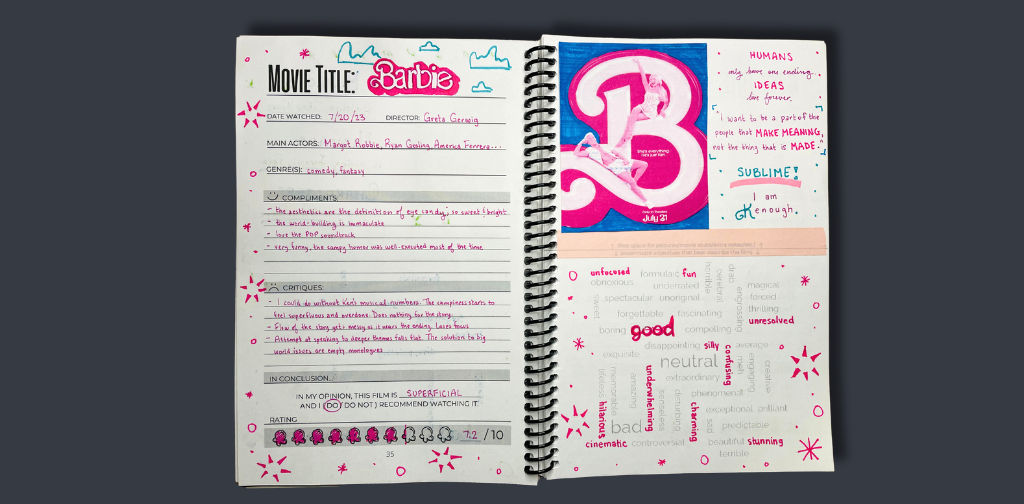 MOVIE TITLE: Barbie
DATE WATCHED: 7/20/23 DIRECTOR: Greta Gerwig
MAIN ACTORS: Margot Robbie, Ryan Gosling, America Ferrera...
GENRE(S): comedy, fantasy
COMPLIMENTS:
- the aesthetics are the definition of eye candy, so sweet & bright
- the world-building is immaculate
- love the POP soundtrack
- very funny, the campy humor was well-executed most of the time.
CRITIQUES:
- I could do without Ken's musical numbers. The campiness starts to
feel superfluous and overdone. Does nothing for the story.
- Flow of the story gets messy as it nears the ending. Loses focus
- Attempt at speaking to deeper themes falls flat. The solution to big
world issues are empty monologues
IN CONCLUSION...
IN MY OPINION, THIS FILM IS SUPERFICIAL
AND I (DO / DO NOT) RECOMMEND WATCHING IT.
RATING
7.2 /10
35
B
She's everything.
He's just Ken.
Only in Theaters
July 21
HUMANS
only have one ending.
IDEAS
live forever.
"I want to be a part of the
people that MAKE MEANING,
not the thing that is MADE."
SUBLIME!
I am
Kenough.
unfocused formulaic fun
obnoxious underrated horrible cerebral drab
magical
spectacular unoriginal engrossing forced
clever thrilling
forgettable fascinating
unresolved
boring good compelling
disappointing silly average
exquisite confusing meh engaging creative
neutral
extraordinary
hilarious memorable amazing underwhelming senseless disturbing phenomenal
charming exceptional brilliant
bad sad predictable
cinematic controversial beautiful stunning
terrible